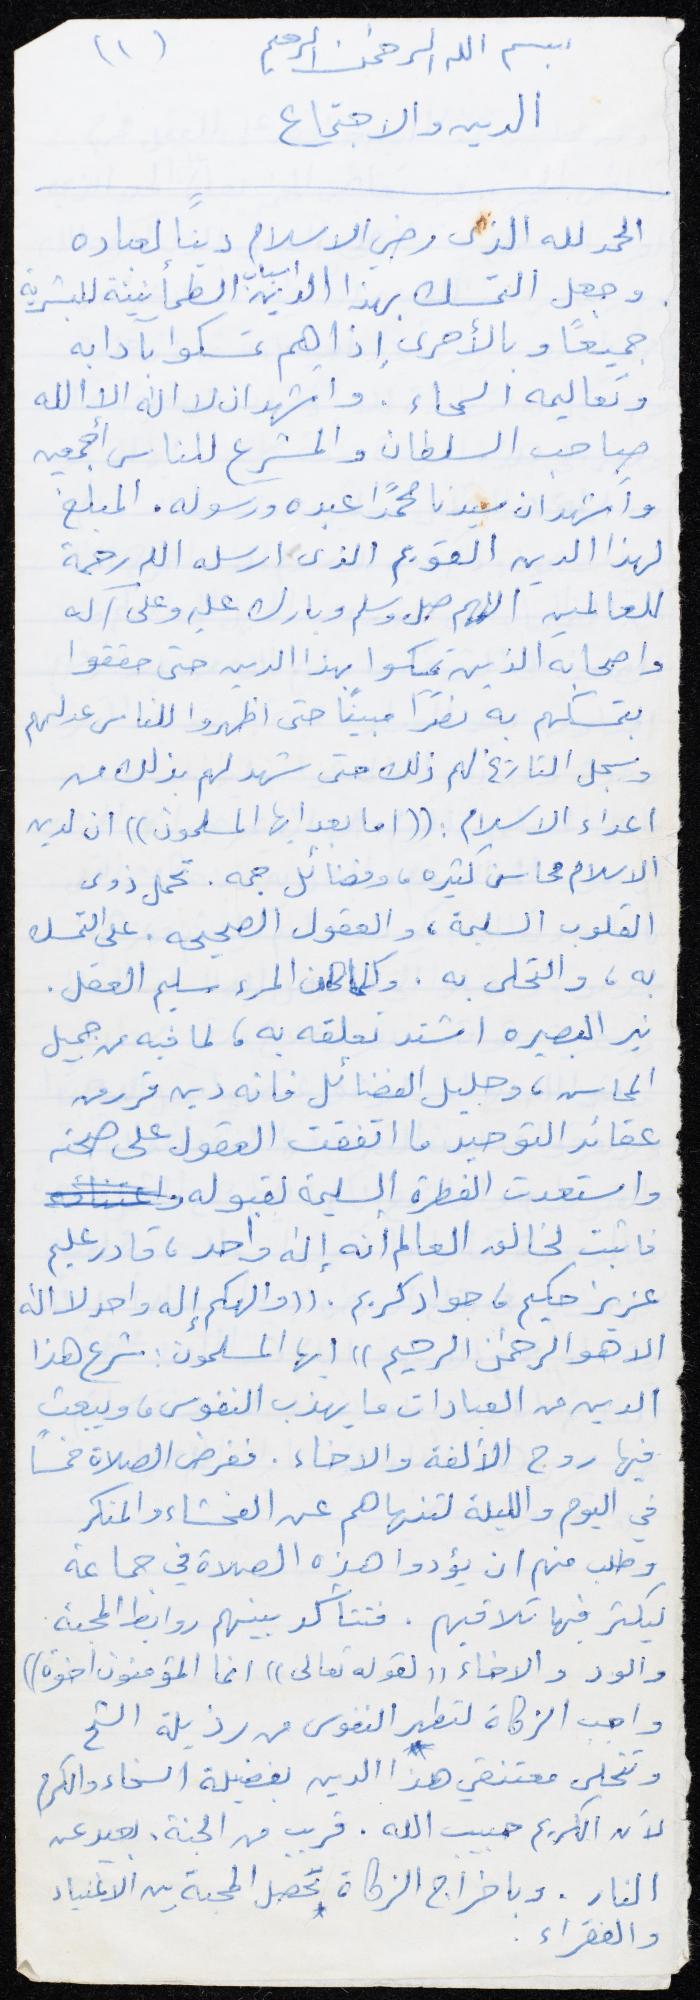 بسم الله الرحمن الرحيم (١)
الدين والاجتماع
الحمد لله الذى رضي الاسلام دينًا لعباده
وجعل التمسك بهذا الدين اسباب الطمأنينة للبشرية
جميعًا و بالأحرى إذا هم تمسكوا بآدابه
وتعاليمه السمحاء . واشهد ان لا اله الا الله
صاحب السلطان والمشرع للناس أجمعين
وأشهد ان سيدنا محمدًا عبده ورسوله . المبلغ
لهذا الدين القويم الذى ارسله الله رحمة
للعالمين اللهم صل وسلم وبارك عليه وعلى آله
واصحابه الذين تمسكوا بهذا الدين حتى حققوا
بتمسكهم به نصرًا مبينًا حتى اظهروا للناس عدلهم
وسجل التاريخ لهم ذلك حتى شهد لهم بذلك من
اعداء الاسلام : ((اما بعد ايها المسلمون)) ان لدين
الاسلام محاسن كثيره ، وفضائل جمه . تحمل ذوى
القلوب السليمة ، والعقول الصحيحه . على التمسك
به ، والتحلى به . وكلما كان المرء سليم العقل .
نير البصيره اشتد تعلقه به ، لما فيه من جميل
المحاسن ، وجليل الفضائل فانه دين قرر من
عقائد التوحيد ما اتفقت العقول على صحته
واستعدت الفطرة السليمة لقبوله واعتناقه
فاثبت لخالق العالم أنه إله واحد ، قادر عليم
عزيز حكيم ، جواد كريم . ((والهكم إله واحد لا اله
الا هو الرحمن الرحيم)) ايها المسلمون : شرع هذا
الدين من العبادات ما يهذب النفوس ، ويبعث
فيها روح الألفة والاخاء . ففرض الصلاة خمسًا
في اليوم والليلة لتنهاهم عن الفحشاء والمنكر
وطلب منهم ان يؤدوا هذه الصلاة في جماعة
ليكثر فيها تلاقيهم . فتتأكد بينهم روابط المحبة
والود والاخاء ((لقوله تعالى)) انما المؤمنون اخوة))
واجب الزكاة لتطهر النفوس من رذيلة الشح
وتتحلى معتنقي هذا الدين بفضيلة السخاء والكرم
لأن الكريم حبيب الله . قريب من الجنة . بعيد عن
النار . وباخراج الزكاة تحصل المحبة بين الاغنياء
والفقراء .